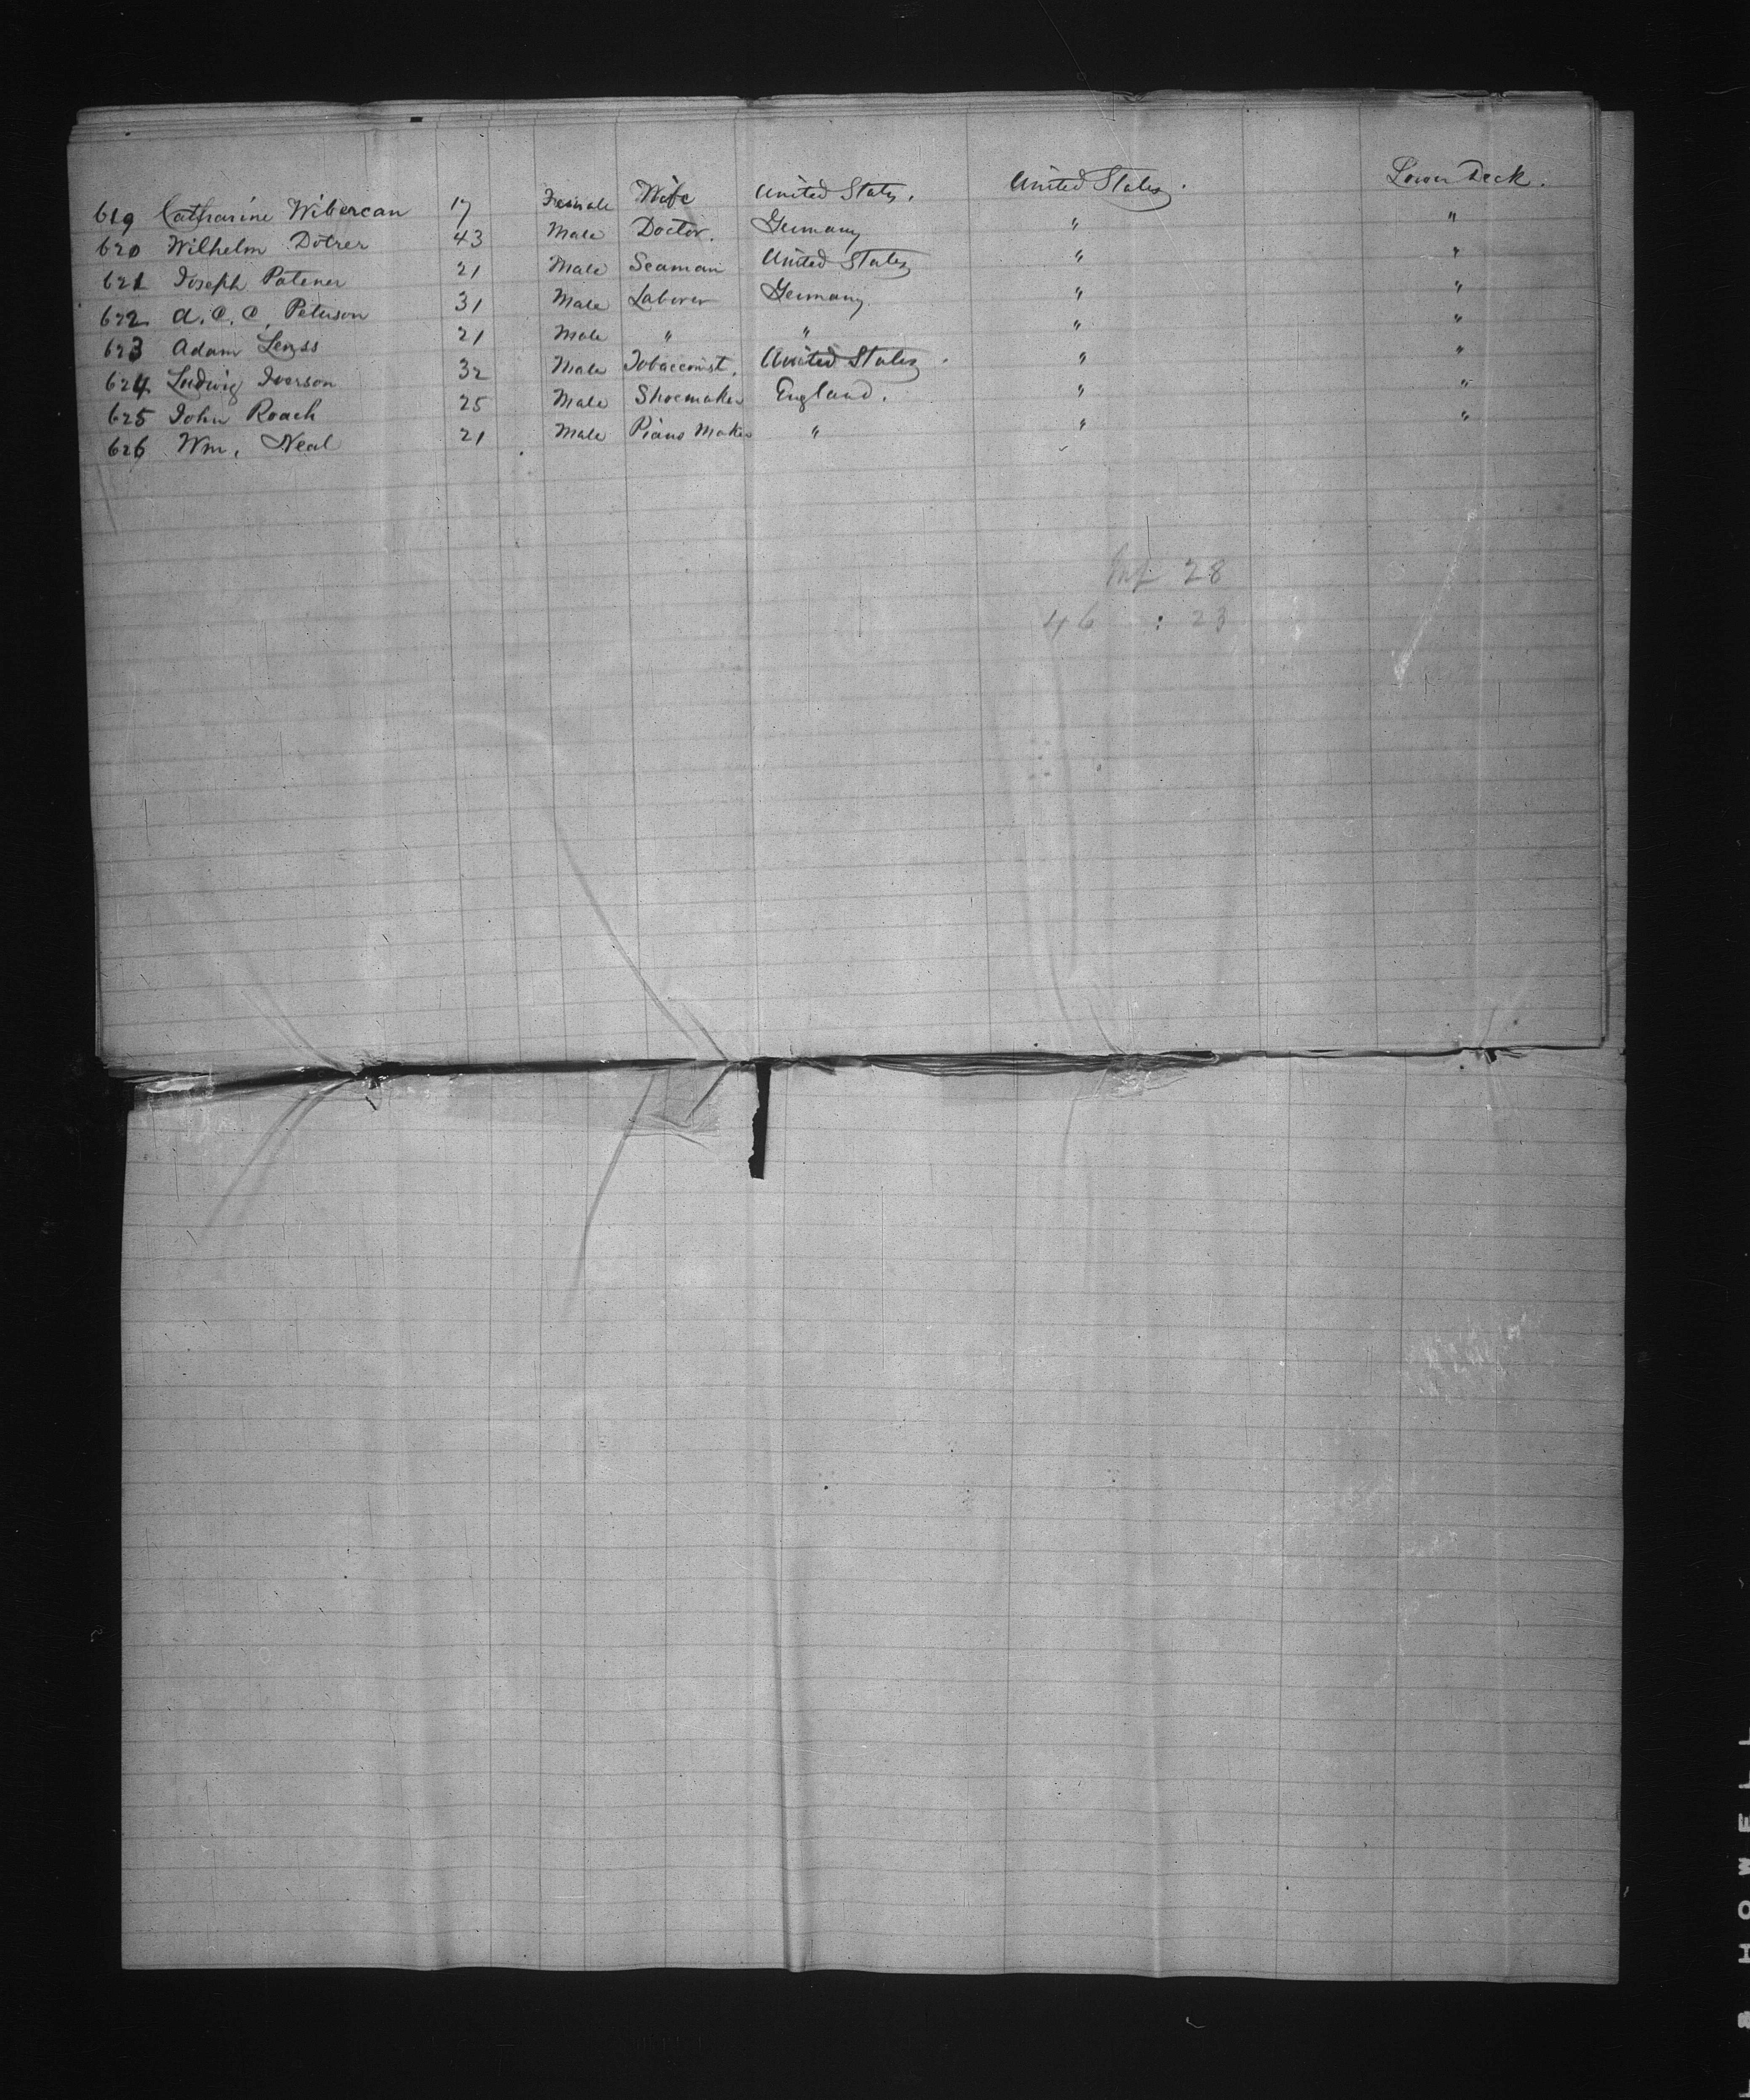 619 Catharine Wibercan 17 Female Wife United States. United States. Lower Deck.
620 Wilhelm Dotrer 43 Male Doctor. Germany " "
621 Joseph Patener 21 Male Seaman United States " "
622 A. C. C. Peterson 31 Male Laborer Germany. " "
623 Adam Lenss 21 Male " " " "
624 Ludwig Iverson 32 Male Tobacconist. United States. " "
625 John Roach 25 Male Shoemaker England. " "
626 Wm. Neal 21 Male Piano Maker " " "
28
46 : 23
HOWELL